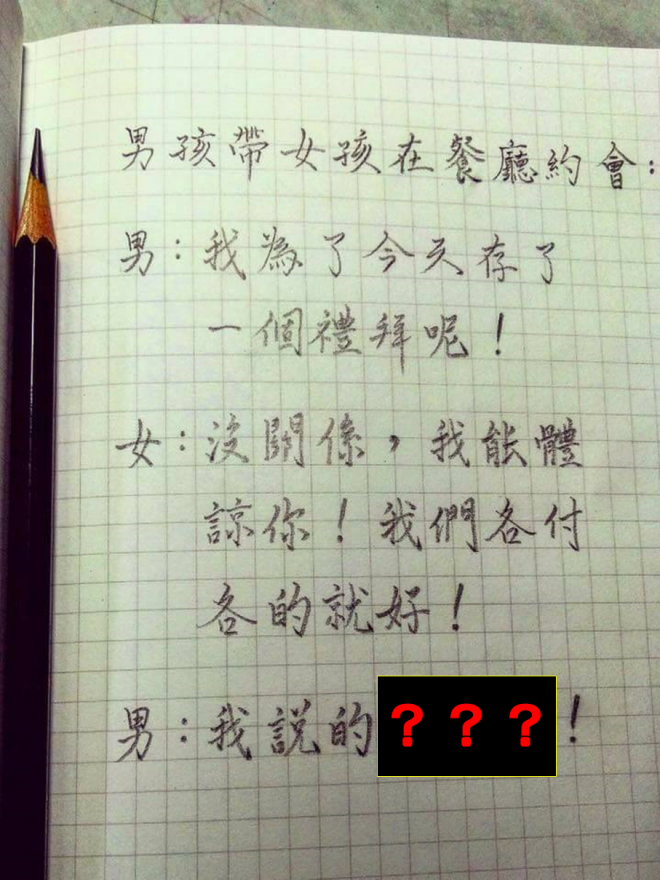 男孩帶女孩在餐廳約會：
男：我為了今天存了
一個禮拜呢！
女：沒關係，我能體
諒你！我們各付
各的就好！
男：我說的？？？！